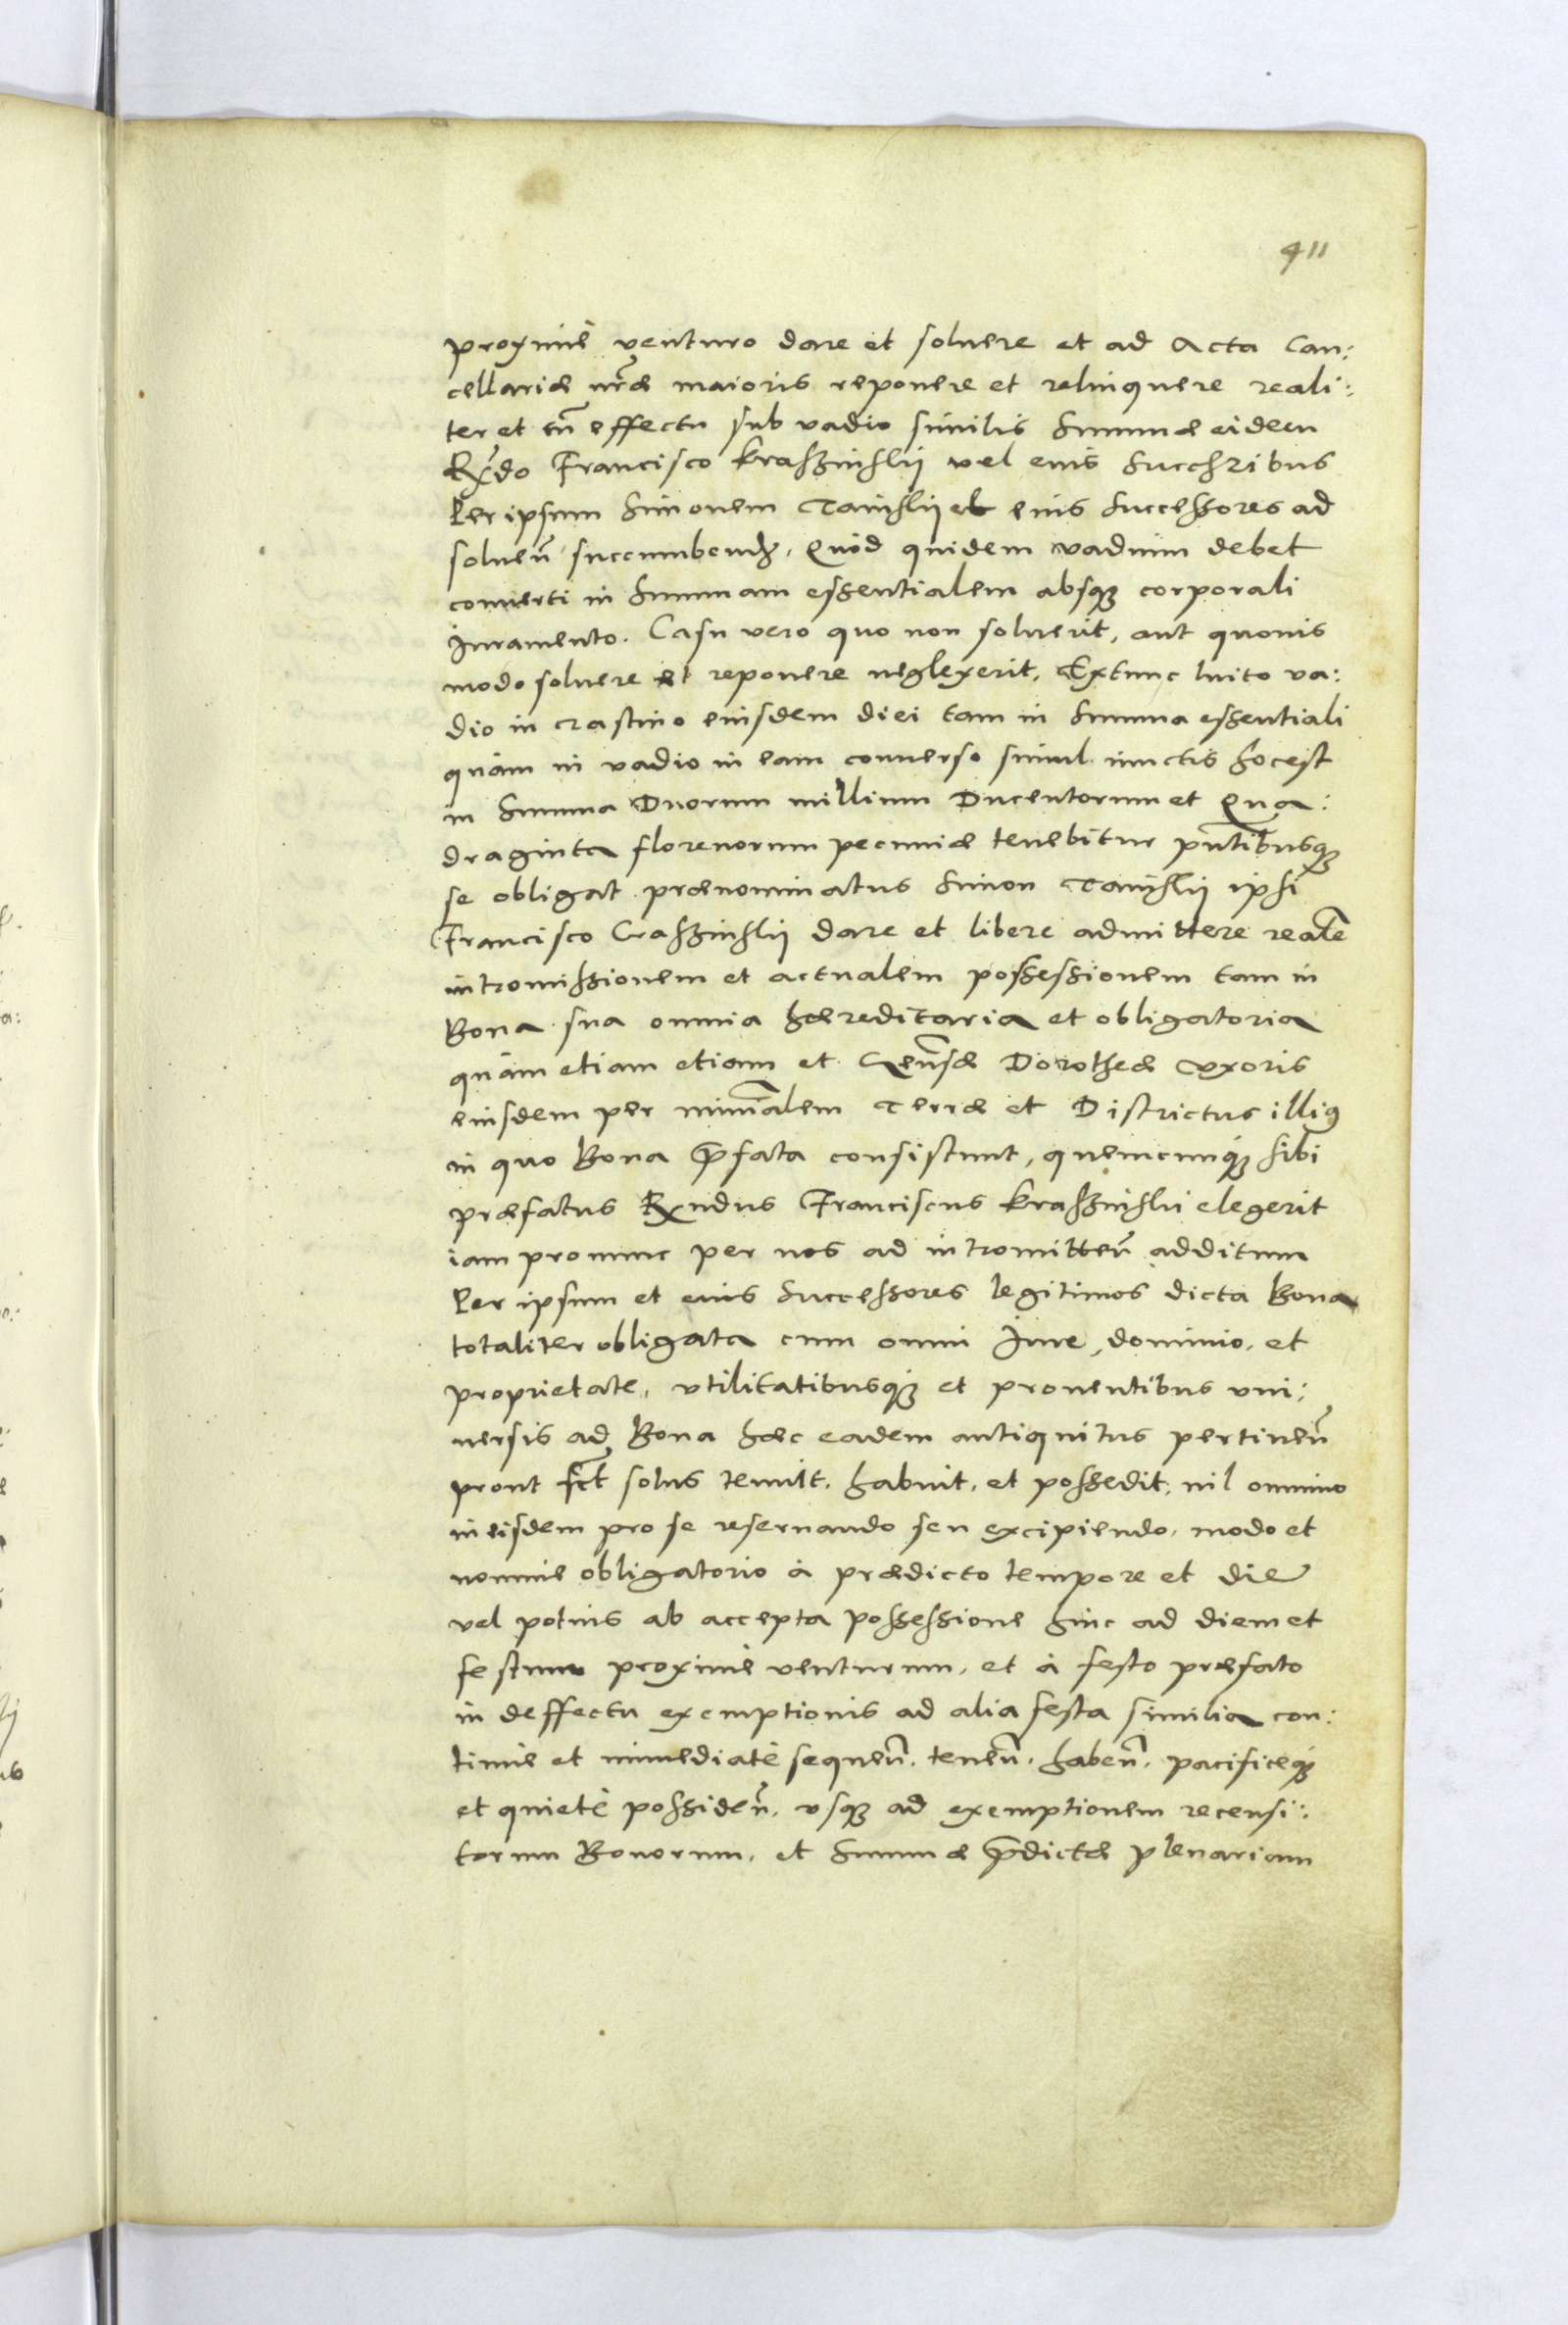 411
proximè venturo dare et soluere et ad Acta Can:
cellariæ nr̃æ maioris reponere et relinquere reali:
ter et cũ effectu sub vadio similis Summæ eidem
Rx̃do Francisco Kraßinßkij vel eius Succeßribus
Per ipsum Simonem Taÿßkij et eius Successores ad
soluen̄ succumbenđ. Quòd quidem vadium debet
conuerti in Summam essentialem absq̃ corporali
Iuramento. Casu vero quo non soluerit, aut quouis
modo soluere et reponere neglexerit, Extunc luito va:
dio in crastino eiusdem diei tam in Summa essentiali
quàm in vadio in eam conuerso simul iunctis hocest
in Summa Duorum millium Ducentorum et Qua:
draginta florenorum pecuniæ tenebitur pñtibusq̃
se obligat prænominatus Simon Taÿßkij ipsi
Francisco Craßinßkij dare et libere admittere realẽ
intromissionem et actualem possessionem tam in
Bona sua omnia hæreditaria et obligatoria
quàm etiam etiam et Gen̄sæ Dorotheæ Vxoris
eiusdem per minr̃alem Terræ et Districtus illiꝰ
in quo Bona p̄fata consistunt, quemcunq̃ sibi
præfatus Rx̃ndus Franciscus Kraßinßkij elegerit
iam pronunc per nos ad intromitten̄ additum
Per ipsum et eius Successores legitimos dicta Bona
totaliter obligata cum omni Iure, dominio, et
proprietate, vtilitatibusq̃ et prouentibus vni:
uersis ad Bona hæc eadem antiquitus pertinen̄
prout sc̃t solus tenuit, habuit, et possedit, nil omnino
in eisdem pro se reseruando seu excipiendo, modo et
nomine obligatorio à prædicto tempore et die
vel potius ab accepta possessione hinc ad diem et
festum proximè venturum, et à festo præfato
in deffectu exemptionis ad alia festa similia con:
tinuè et immediatè sequen̄. tenen̄. haben̄. pacificeq̃
et quietè possiden̄. vsq̃ ad exemptionem recensi:
torum Bonorum, et Summæ p̄dictæ plenariam